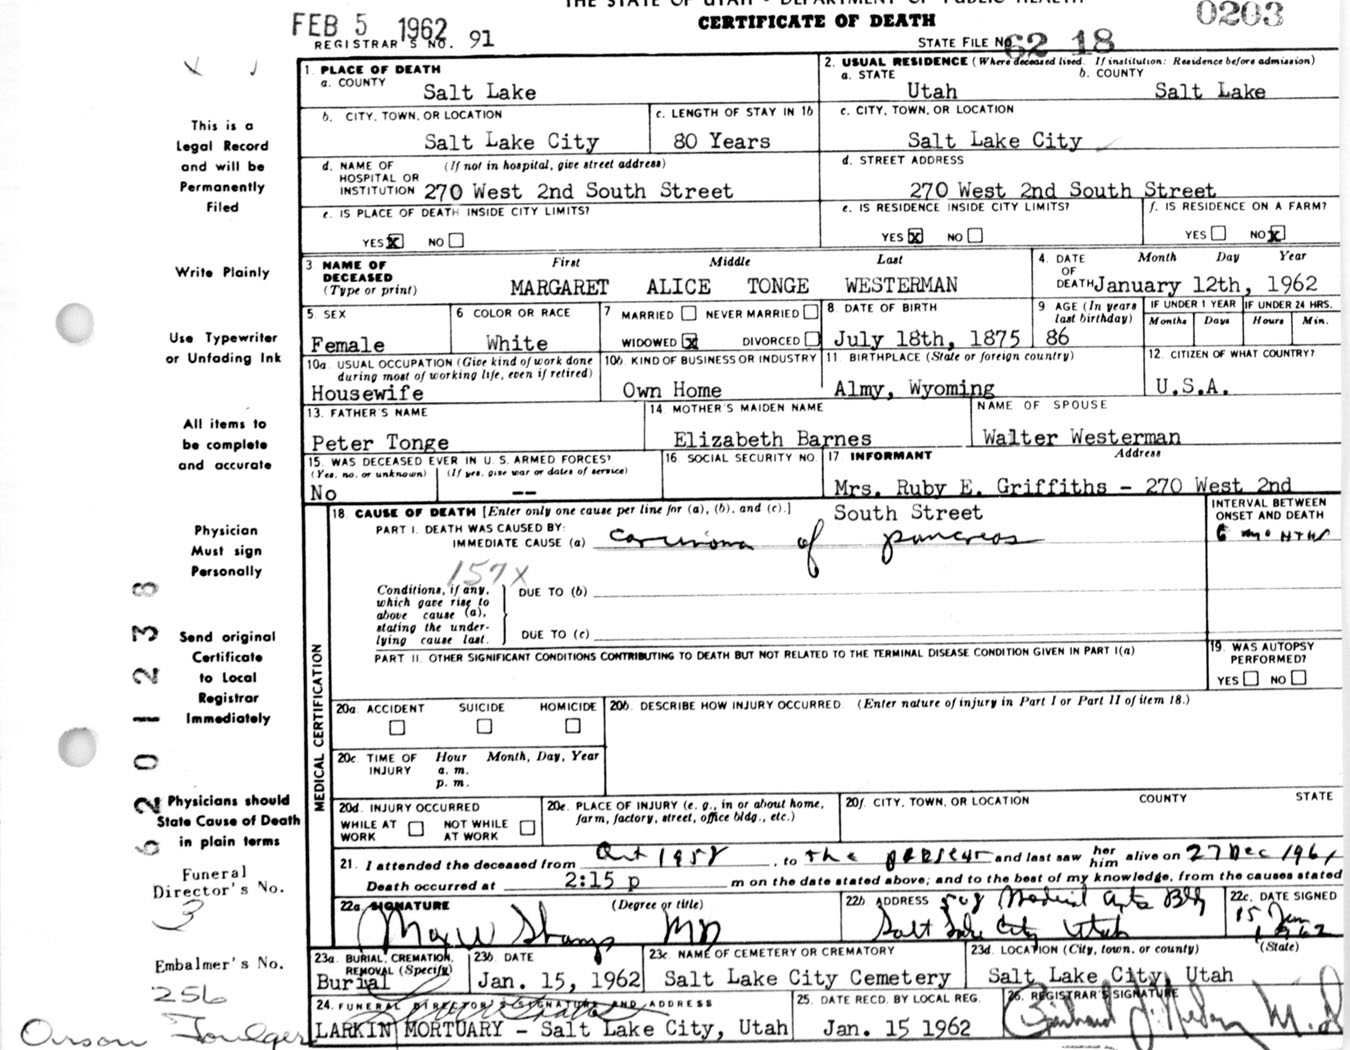 THE STATE OF UTAH - DEPARTMENT OF PUBLIC HEALTH
CERTIFICATE OF DEATH
0203
FEB 5 1962
REGISTRAR'S NO. 91
STATE FILE NO. 62 18
1. PLACE OF DEATH
a. COUNTY Salt Lake
2. USUAL RESIDENCE (Where deceased lived. If institution: Residence before admission)
a. STATE Utah b. COUNTY Salt Lake
b. CITY, TOWN, OR LOCATION Salt Lake City
c. LENGTH OF STAY IN 1b 80 Years
c. CITY, TOWN, OR LOCATION Salt Lake City
d. NAME OF HOSPITAL OR INSTITUTION (If not in hospital, give street address) 270 West 2nd South Street
d. STREET ADDRESS 270 West 2nd South Street
e. IS PLACE OF DEATH INSIDE CITY LIMITS?
YES X NO
e. IS RESIDENCE INSIDE CITY LIMITS?
YES X NO
f. IS RESIDENCE ON A FARM?
YES NO X
3 NAME OF DECEASED (Type or print)
First Middle Last
MARGARET ALICE TONGE WESTERMAN
4. DATE OF DEATH Month Day Year
January 12th, 1962
5. SEX Female
6 COLOR OR RACE White
7 MARRIED NEVER MARRIED
WIDOWED X DIVORCED
8. DATE OF BIRTH July 18th, 1875
9 AGE (In years last birthday) 86
IF UNDER 1 YEAR Months Days
IF UNDER 24 HRS. Hours Min.
10a. USUAL OCCUPATION (Give kind of work done during most of working life, even if retired)
Housewife
10b. KIND OF BUSINESS OR INDUSTRY Own Home
11. BIRTHPLACE (State or foreign country) Almy, Wyoming
12. CITIZEN OF WHAT COUNTRY? U.S.A.
13. FATHER'S NAME Peter Tonge
14 MOTHER'S MAIDEN NAME Elizabeth Barnes
NAME OF SPOUSE Walter Westerman
15. WAS DECEASED EVER IN U. S. ARMED FORCES?
(Yes, no, or unknown) (If yes, give war or dates of service)
No --
16. SOCIAL SECURITY NO
17 INFORMANT Address
Mrs. Ruby E. Griffiths - 270 West 2nd
South Street
18. CAUSE OF DEATH [Enter only one cause per line for (a), (b), and (c).]
PART I. DEATH WAS CAUSED BY:
IMMEDIATE CAUSE (a) carcinoma of pancreas
INTERVAL BETWEEN ONSET AND DEATH
6 moNTHS
157X
Conditions, if any, which gave rise to above cause (a), stating the underlying cause last.
DUE TO (b)
DUE TO (c)
PART II. OTHER SIGNIFICANT CONDITIONS CONTRIBUTING TO DEATH BUT NOT RELATED TO THE TERMINAL DISEASE CONDITION GIVEN IN PART I(a)
19. WAS AUTOPSY PERFORMED?
YES NO
MEDICAL CERTIFICATION
20a. ACCIDENT SUICIDE HOMICIDE
20b. DESCRIBE HOW INJURY OCCURRED. (Enter nature of injury in Part I or Part II of item 18.)
20c. TIME OF INJURY Hour Month, Day, Year
a. m.
p. m.
20d. INJURY OCCURRED
WHILE AT WORK NOT WHILE AT WORK
20e. PLACE OF INJURY (e. g., in or about home, farm, factory, street, office bldg., etc.)
20f. CITY, TOWN, OR LOCATION COUNTY STATE
21. I attended the deceased from Oct 1958, to the present and last saw her him alive on 27 Dec 1961
Death occurred at 2:15 p m on the date stated above; and to the best of my knowledge, from the causes stated
22a. SIGNATURE (Degree or title)
Max W MD
22b ADDRESS 508 Medical Arts Bldg
Salt Lake City Utah
22c. DATE SIGNED
15 Jan 1962
23a. BURIAL, CREMATION, REMOVAL (Specify) Burial
23b. DATE Jan. 15, 1962
23c. NAME OF CEMETERY OR CREMATORY Salt Lake City Cemetery
23d. LOCATION (City, town, or county) (State)
Salt Lake City, Utah
24. FUNERAL DIRECTOR'S SIGNATURE AND ADDRESS
LARKIN MORTUARY - Salt Lake City, Utah
25. DATE RECD. BY LOCAL REG. Jan. 15 1962
26. REGISTRAR'S SIGNATURE
M.D
This is a
Legal Record
and will be
Permanently
Filed
Write Plainly
Use Typewriter
or Unfading Ink
All items to
be complete
and accurate
Physician
Must sign
Personally
Send original
Certificate
to Local
Registrar
Immediately
Physicians should
State Cause of Death
in plain terms
62 01-238
Funeral
Director's No.
3
Embalmer's No.
256
Orson Foulger